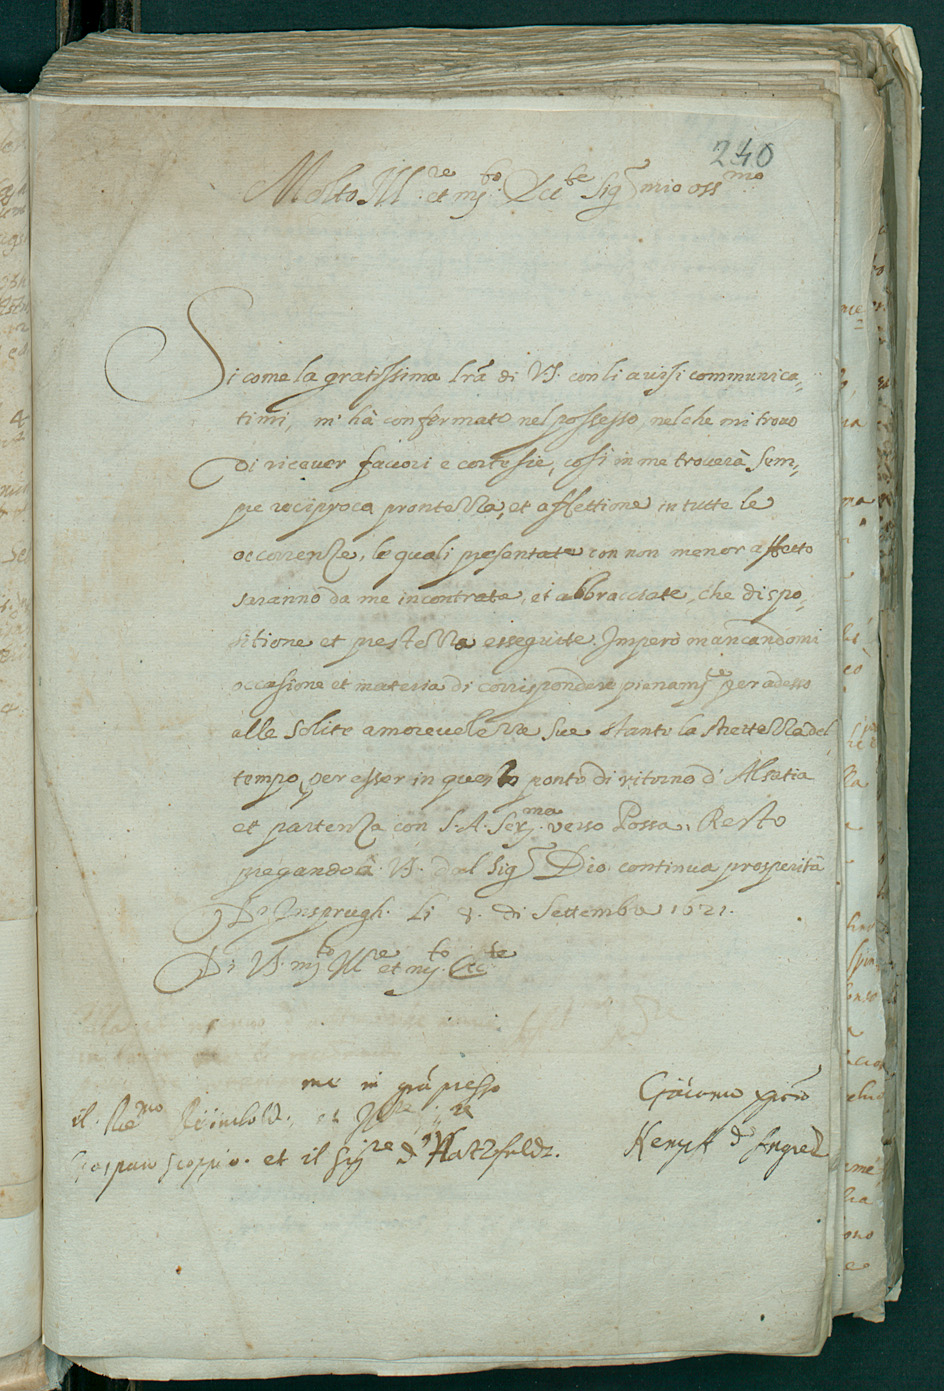 240
Molto Ill.re et m.to Ecc.te Sig.r mio oss.mo
Si come la gratissima lrã di VS. con li auisi communica-
timi, m'hà confermato nel possesso, nel che mi trouo
di riceuer fauori e cortesie, cosi in me trouerà sem-
pe reciproca prontezza, et affettione in tutte le
occorenze, le quali presentate con non menor affetto
saranno da me incontrate, et abbracciate, che dispo-
sitione et prestezza esseguite. Imperò mancandomi
occasione et materia di corrispondere pienam.te per adesso
alle solite amoreuolezze sue stante la strettezza del
tempo, per esser in questo ponto di ritorno d'Alsatia
et partenza con S.A. Ser.ma verso Possa, Resto
pregando à VS. dal Sig.r Dio continua prosperità
D'Insprugh. Li 8. di Settembre 1621.
Di VS. m.to Ill.re et m.to Ecc.te
me in grã presso
il Re.mo
Gasparo Scoppio. et il Sig.re d'Hatzfeldt.
Giacomo
Kempf d'Angred